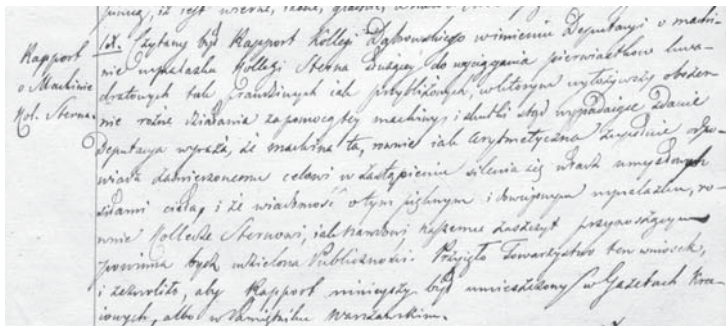 Rapport
o Machinie
Kol. Sterna.
1od. Czytany był Rapport Kollegi Dąbrowskiego w imieniu Deputacyi o machi-
nie wynalazku Kollegi Sterna służącey do wyciągania pierwiastków kwa-
dratowych tak prawdziwych iak przybliżonych, w którym wyłożywszy obszer-
nie różne działania za pomocą tey machiny, i skutki ztąd wypadaiące zdanie
Deputacya wyraża, że machina ta, równie iak Arytmetyczna zupełnie odpo-
wiada zamierzonemu celowi w zastąpieniu silenia się władz umysłowych
siłami ciała, i że wiadomość o tym pięknym i dowcipnym wynalazku, ró-
wnie Kolledze Sternowi, iak narodowi naszemu zaszczyt przynoszącym
powinna bydź udzielona Publiczności. Przyięło Towarzystwo ten wniosek,
i zezwoliło, aby Rapport ninieyszy był umieszczony w Gazetach Kra-
iowych, albo w Pamiętniku Warszawskim.